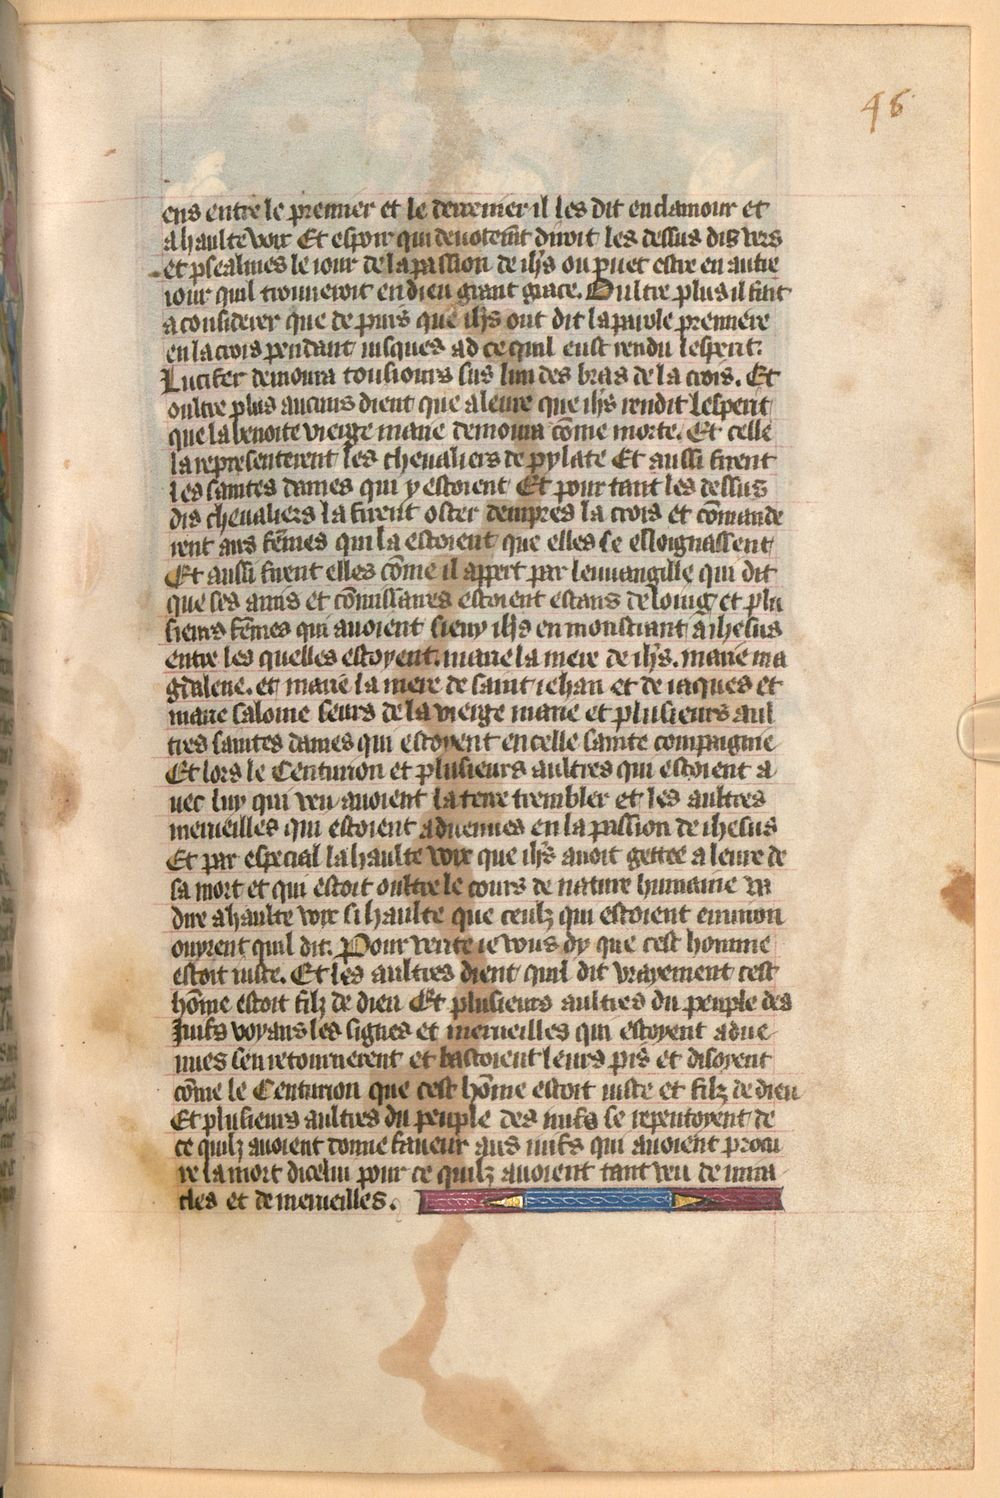 46
ens entre le premier et le derrenier il les dit en clamour et
a haulte voix Et espoir qui devotemẽt diroit les dessus dis vers
et psealmes le jour de la passion de ih̃s ou p̱ vuec estre en autre
jour quil trouveroit en dieu grant grace. Oultre plus il fait
a considerer que de puis que ih̃s out dit la parole premiere
en la crois pendant jusques ad ce quil eust rendu lesperit.
Lucifer demoura tousiours sus lun des bras de la crois. Et
oultre plus aucuns dient que a leure que ih̃s rendit lesperit
que la benoite vierge marie demoura cõme morte. Et celle
la representerent les chevaliers de pylate Et aussi furent
les saintes dames qui y estoient Et pour tant les dessus
dis chevaliers la firent oster dempres la crois et cõmande
rent aus fẽmes qui la estoient que elles se esloignassent
Et aussi firent elles cõme il appert par leuvangille qui dit
que ses amis et cõnissances estoient estans de loing et plu
sieurs fẽmes qui avoient sieuy ih̃s en monstrant a ihesus
entre les quelles estoyent. marie la mere de ih̃s. marie ma
gdalene. et marie la mere de saint jehan et de jaques et
marie salome seurs de la vierge marie et plusieurs aul
tres saintes dames qui estoyent en celle sainte compaignie
Et lors le Centurion et plusieurs aultres qui estoient a
vec luy qui veu avoient la terre trembler et les aultres
merveilles qui estoient advenues en la passion de ihesus
Et par especial la haulte voix que ih̃s avoit gettee a leure de
sa mort et qui estoit oultre le cours de nature humaine va
dire a haulte voix si haulte que ceulz qui estoient environ
ouyrent quil dit. Pour verite je vous dy que cest homme
estoit juste. Et les aultres dient quil dit vrayement cest
hõme estoit filz de dieu Et plusieurs aultres du peuple des
Juifs voyans les signes et merveilles qui estoyent adve
nues sen retournerent et bastoient leurs pis et disoyent
cõme le Centurion que cest hõme estoit juste et filz de dieu
Et plusieurs aultres du peuple des juifs se repentoyent de
ce quilz avoient donne faveur aus juifs qui avoient procu
re la mort dicelui pour ce quilz avoient tant veu de mira
cles et de merveilles.